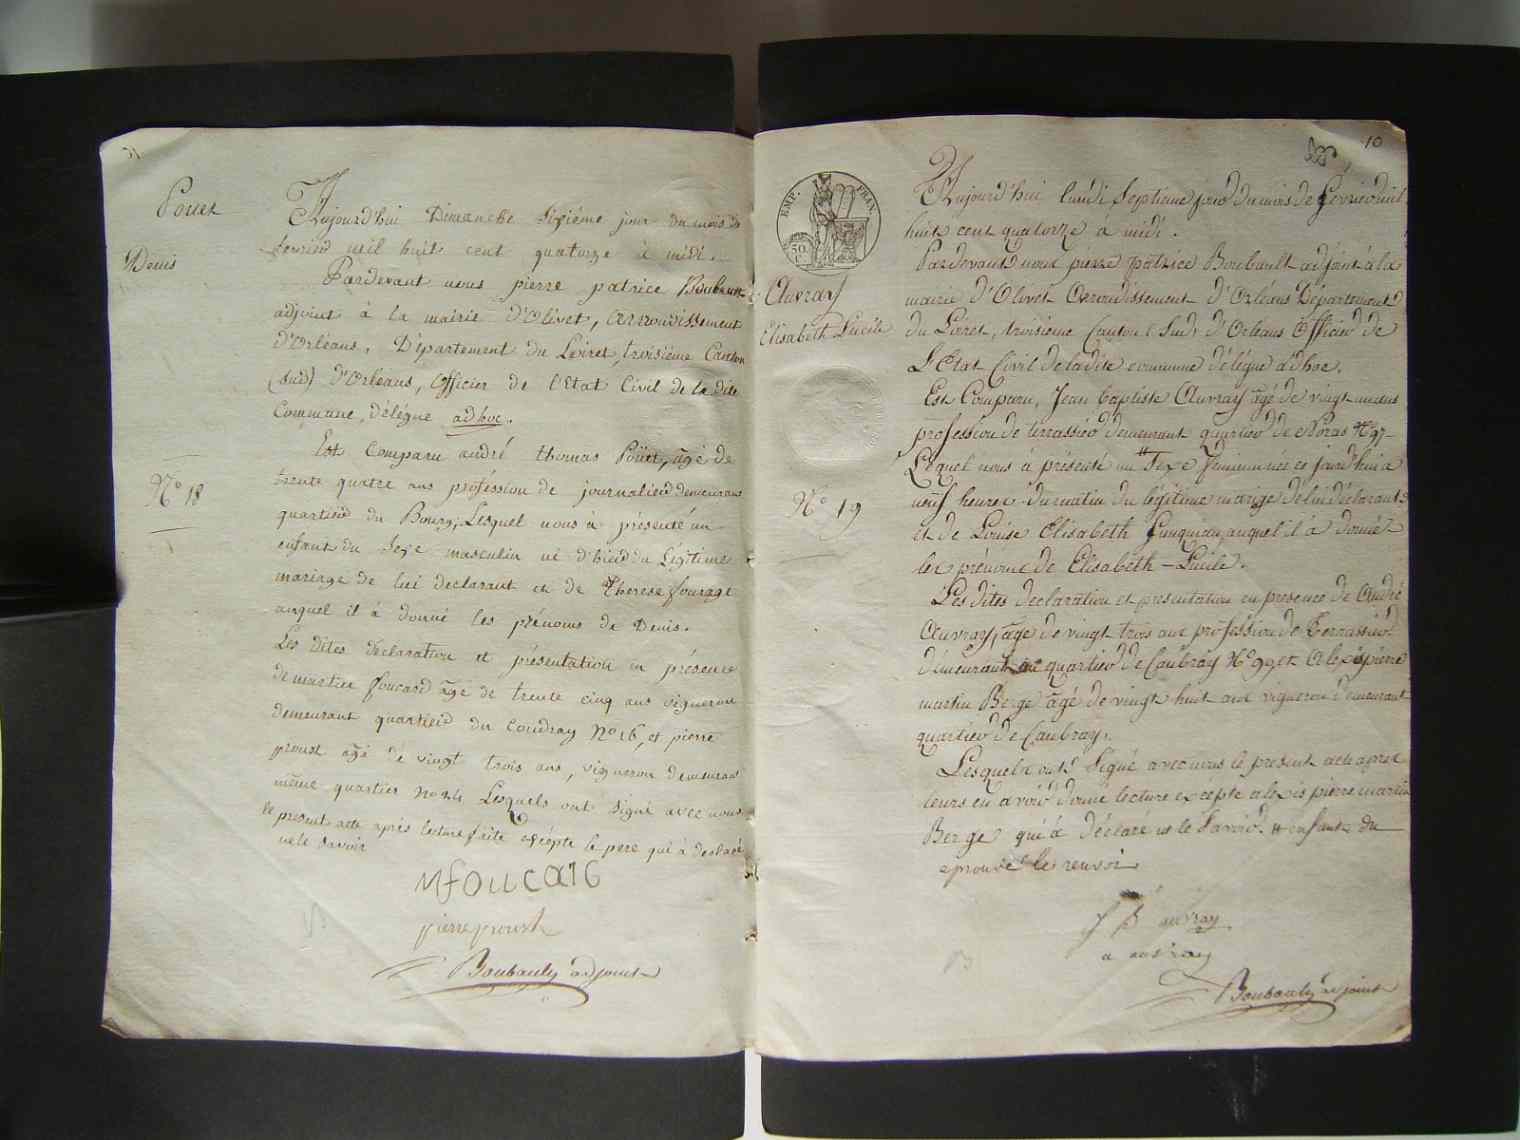 Pouet
Denis
N° 18
Aujourd'hui Dimanche Sixiéme jour du mois de
fevrier mil huit cent quatorze à midi.
Pardevant nous pierre patrice Boubault
adjoint à la mairie d'Olivet, arrondissement
d'Orléans, Département du Loiret, troisiéme Canton
(sud) d'Orléans, Officier de l'Etat Civil de la dite
Commune, délégué adhoc.
Est Comparu andré thomas Poüet, agé de
trente quatre ans profession de journalier demeurant
quartier du Bourg; Lesquel nous à présenté un
enfant du Sexe masculin né d'hier du Légitime
mariage de lui declarant et de Therese fourage
auquel il à donné les prénoms de Denis.
Les dites declaration et présentation en présence
de martin foucard agé de trente cinq ans vigneron
demeurant quartier du coudray N° 16, et pierre
proust agé de vingt trois ans, vigneron demeurant
même quartier N° 24 Lesquels ont Signé avec nous
le present acte après lecture faite excépté le pere qui à declaré
ne le Savoir
Mfoucard
pierre proust
Boubault adjoint
10
EMP. FRAN.
50 c
Auvray
Elisabeth Lucile
N° 19
Aujourd'hui lundi Septieme jour du mois de fevrier mil
huit cent quatorze à midi.
Pardevant nous pierre patrice Boubault adjoint à la
mairie d'Olivet Arrondissement d'Orléans Département
du Loiret, troisieme Canton (Sud) d'Orleans Officier de
L'Etat Civil de la dite commune délégué adhoc.
Est Comparu, Jean baptiste Auvray agé de vingt un ans
profession de terrassier demeurant quartier de Noras N° 97
Lequel nous à présenté un # Sexe feminin née ce jourd'hui à
neuf heures du matin du légitime mariage de lui déclarant
et de Louise Elisabeth auquel il à donné
les prénoms de Elisabeth-Lucile.
Les dites declaration et presentation en presence de André
Auvray, agé de vingt trois ans profession de Terrassier
demeurant quartier de Caubray N° 99, et Alexis pierre
martin Berge agé de vingt huit ans vigneron demeurant
quartier de Caubray,
Lesquels ont Signé avec nous le present acte apres
leurs en avoir donné lecture excépté alexis pierre martin
Berge qui à déclaré ne le Savoir. # enfant du
aprouvé le renvoi
J B auvray
a auvray
Boubault adjoint